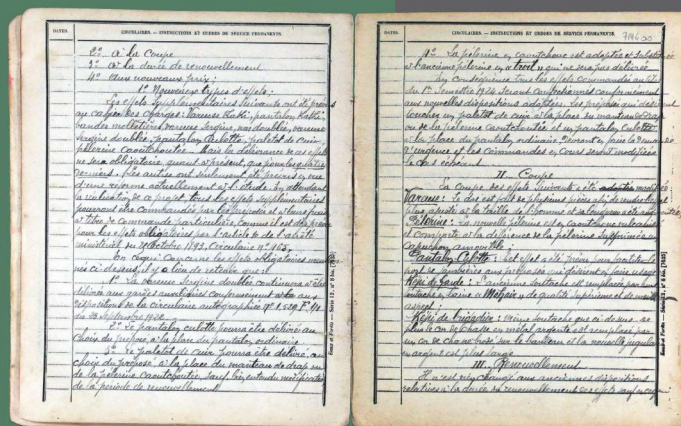 DATES.
CIRCULAIRES. — INSTRUCTIONS ET ORDRES DE SERVICE PERMANENTS.
2° à la Coupe
3° à la durée de renouvellement
4° aux nouveaux prix;
1° Nouveaux types d'effets:
Les effets supplémentaires suivants ont été prévus
au cahier des charges: vareuse Kaki, pantalon Kaki,
bandes molletières, vareuse sergine non doublée, vareuse
sergine doublée, pantalon culotte, paletot de cuir
pélerine caoutchoutée. Mais la délivrance de ces effets
ne sera obligatoire, quant à présent, que pour les quatre
derniers. Les autres ont seulement été prévus en vue
d'une réforme actuellement à l'étude. En attendant
la réalisation de ce projet tous les effets supplémentaires
pourront être commandés par les préposés et à leurs frais
à titre de commande particulière, comme il est de règle
pour les effets obligatoires par l'article 10 de l'arrêté
ministériel du octobre 1893, Circulaire N° 465.
En ce qui concerne les effets obligatoires
ci-dessus, il y a lieu de retenir que:
1° La vareuse sergine doublée continuera à être
délivrée aux gardes auxiliaires conformément aux
dispositions de la circulaire autographiée N° 1.529
du 23 Septembre 1922
2° Le pantalon culotte pourra être délivré au
choix du préposé, à la place du pantalon ordinaire
3° Le paletot de cuir pourra être délivré, au
choix du préposé, à la place du manteau de drap ou
de la pélerine caoutchoutée, sauf bien entendu modification
de la période de renouvellement
DATES.
CIRCULAIRES. — INSTRUCTIONS ET ORDRES DE SERVICE PERMANENTS.
4° La pélerine en caoutchouc est adoptée et substituée
à l'ancienne pélerine en treuil qui ne sera plus délivrée
En conséquence tous les effets commandés au
du 1er Semestre 1924 seront confectionnés conformément
aux nouvelles dispositions adoptées. Les préposés qui désirent
toucher un paletot de cuir à la place du manteau de drap
ou de la pélerine caoutchoutée et un pantalon culotte
à la place du pantalon ordinaire devront en faire la demande
d'urgence et les commandes en cours seront modifiées
le cas échéant
II — Coupe
La coupe des effets suivants a été modifiée:
Vareuse: Le dos est fait de plusieurs pièces afin de rendre l'effet
plus ajusté à la taille de l'homme et sa longueur a été augmentée
Pélerine: La nouvelle pélerine est en caoutchouc vulcanisé
et comporte à la différence de la pélerine supprimée un
capuchon amovible;
Pantalon Culotte: cet effet a été prévu pour faciliter le
port de jambières aux préposés qui désirent en faire usage
Képi de Garde: L'ancienne soutache est remplacée par une
soutache en laine de qualité supérieure et de meilleur
aspect.
Képi de brigadier: Même soutache que ci-dessus. de
plus le cor de chasse en métal argenté est remplacé par
un cor de chasse brodé sur le bandeau et la nouvelle jugulaire
en argent est plus large
III — Renouvellement
Il n'est rien changé aux anciennes dispositions
relatives à la durée de renouvellement des effets sauf en ce qui